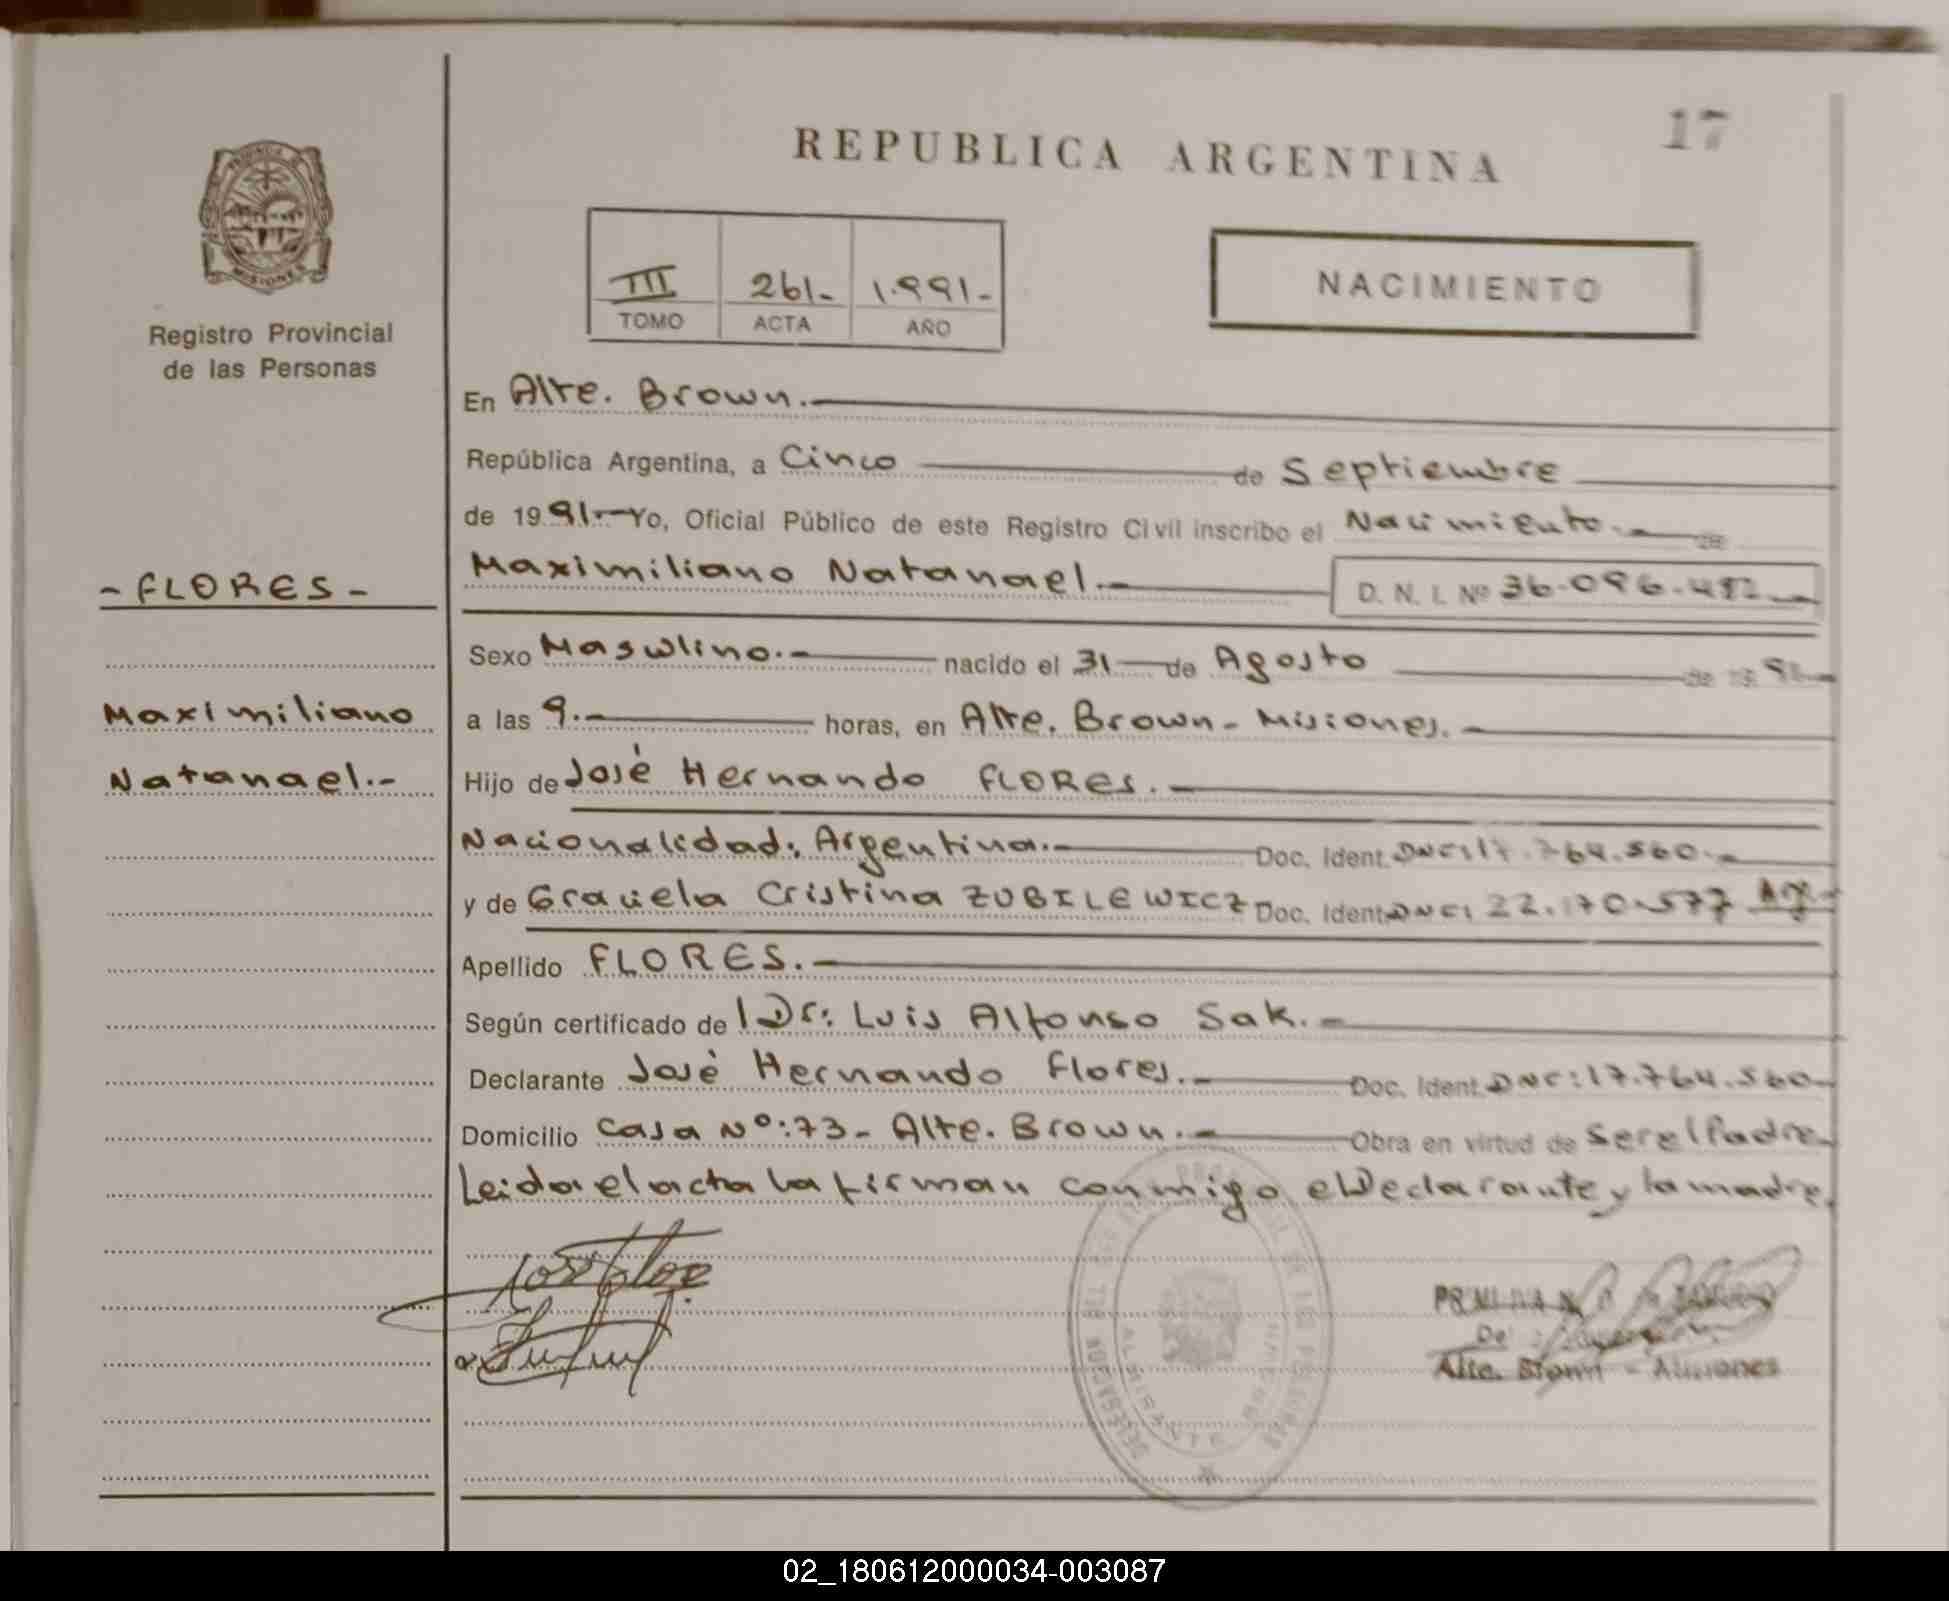 17
REPUBLICA ARGENTINA
MISIONES
Registro Provincial
de las Personas
III 261- 1.991-
TOMO ACTA AÑO
NACIMIENTO
En Alte. Brown.-
República Argentina, a Cinco de Septiembre
de 1991.- Yo, Oficial Público de este Registro Civil inscribo el Nacimiento.- de
- FLORES -
Maximiliano Natanael.- D. N. I. Nº 36.096.482.-
Sexo Masculino.- nacido el 31 de Agosto de 19 91-
Maximiliano
a las 9.- horas, en Alte. Brown - Misiones.-
Natanael.-
Hijo de José Hernando FLORES.-
Nacionalidad: Argentina.- Doc. Ident. DNI: 17.764.560.-
y de Graciela Cristina ZUBILEWICZ Doc. Ident. DNI: 22.170.577 Arg.-
Apellido FLORES.-
Según certificado de Dr: Luis Alfonso Sak.-
Declarante José Hernando Flores.- Doc. Ident. DNI: 17.764.560-
Domicilio Casa Nº: 73 - Alte. Brown.- Obra en virtud de Ser el Padre-
Leida el acta la firman conmigo el Declarante y la madre.
DELEGACION
ALMIRANTE
Alte. Brown - Misiones
02_180612000034-003087